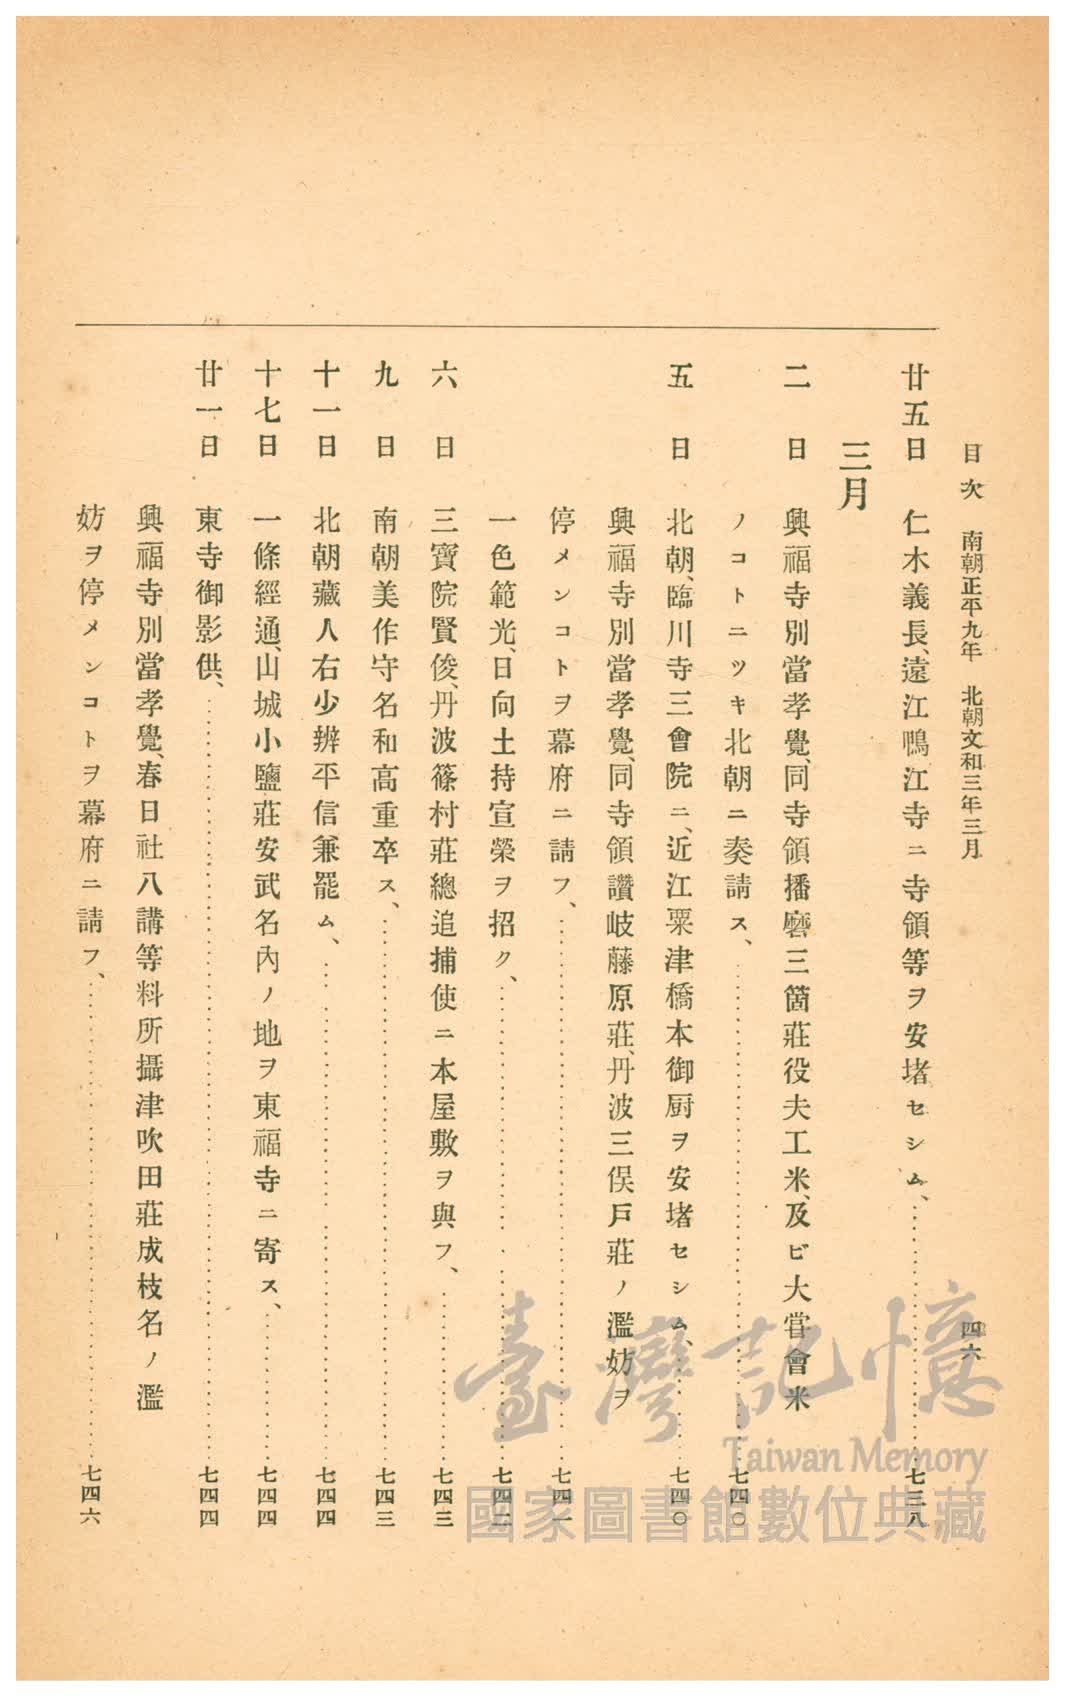 目次　南朝正平九年　北朝文和三年三月　四六
廿五日　仁木義長、遠江鴨江寺ニ寺領等ヲ安堵セシム、……七三八
三月
二日　興福寺別當孝覺、同寺領播磨三箇莊役夫工米、及ビ大嘗會米
ノコトニツキ北朝ニ奏請ス、……七四〇
五日　北朝、臨川寺三會院ニ、近江粟津橋本御厨ヲ安堵セシム、……七四〇
興福寺別當孝覺、同寺領讚岐藤原莊、丹波三俣戸莊ノ濫妨ヲ
停メンコトヲ幕府ニ請フ、……七四一
一色範光、日向土持宣榮ヲ招ク、……七四二
六日　三寶院賢俊、丹波篠村莊總追捕使ニ本屋敷ヲ與フ、……七四三
九日　南朝美作守名和高重卒ス、……七四三
十一日　北朝藏人右少辨平信兼罷ム、……七四四
十七日　一條經通、山城小鹽莊安武名內ノ地ヲ東福寺ニ寄ス、……七四四
廿一日　東寺御影供、……七四四
興福寺別當孝覺、春日社八講等料所攝津吹田莊成枝名ノ濫
妨ヲ停メンコトヲ幕府ニ請フ、……七四六
臺灣記憶
Taiwan Memory
國家圖書館數位典藏